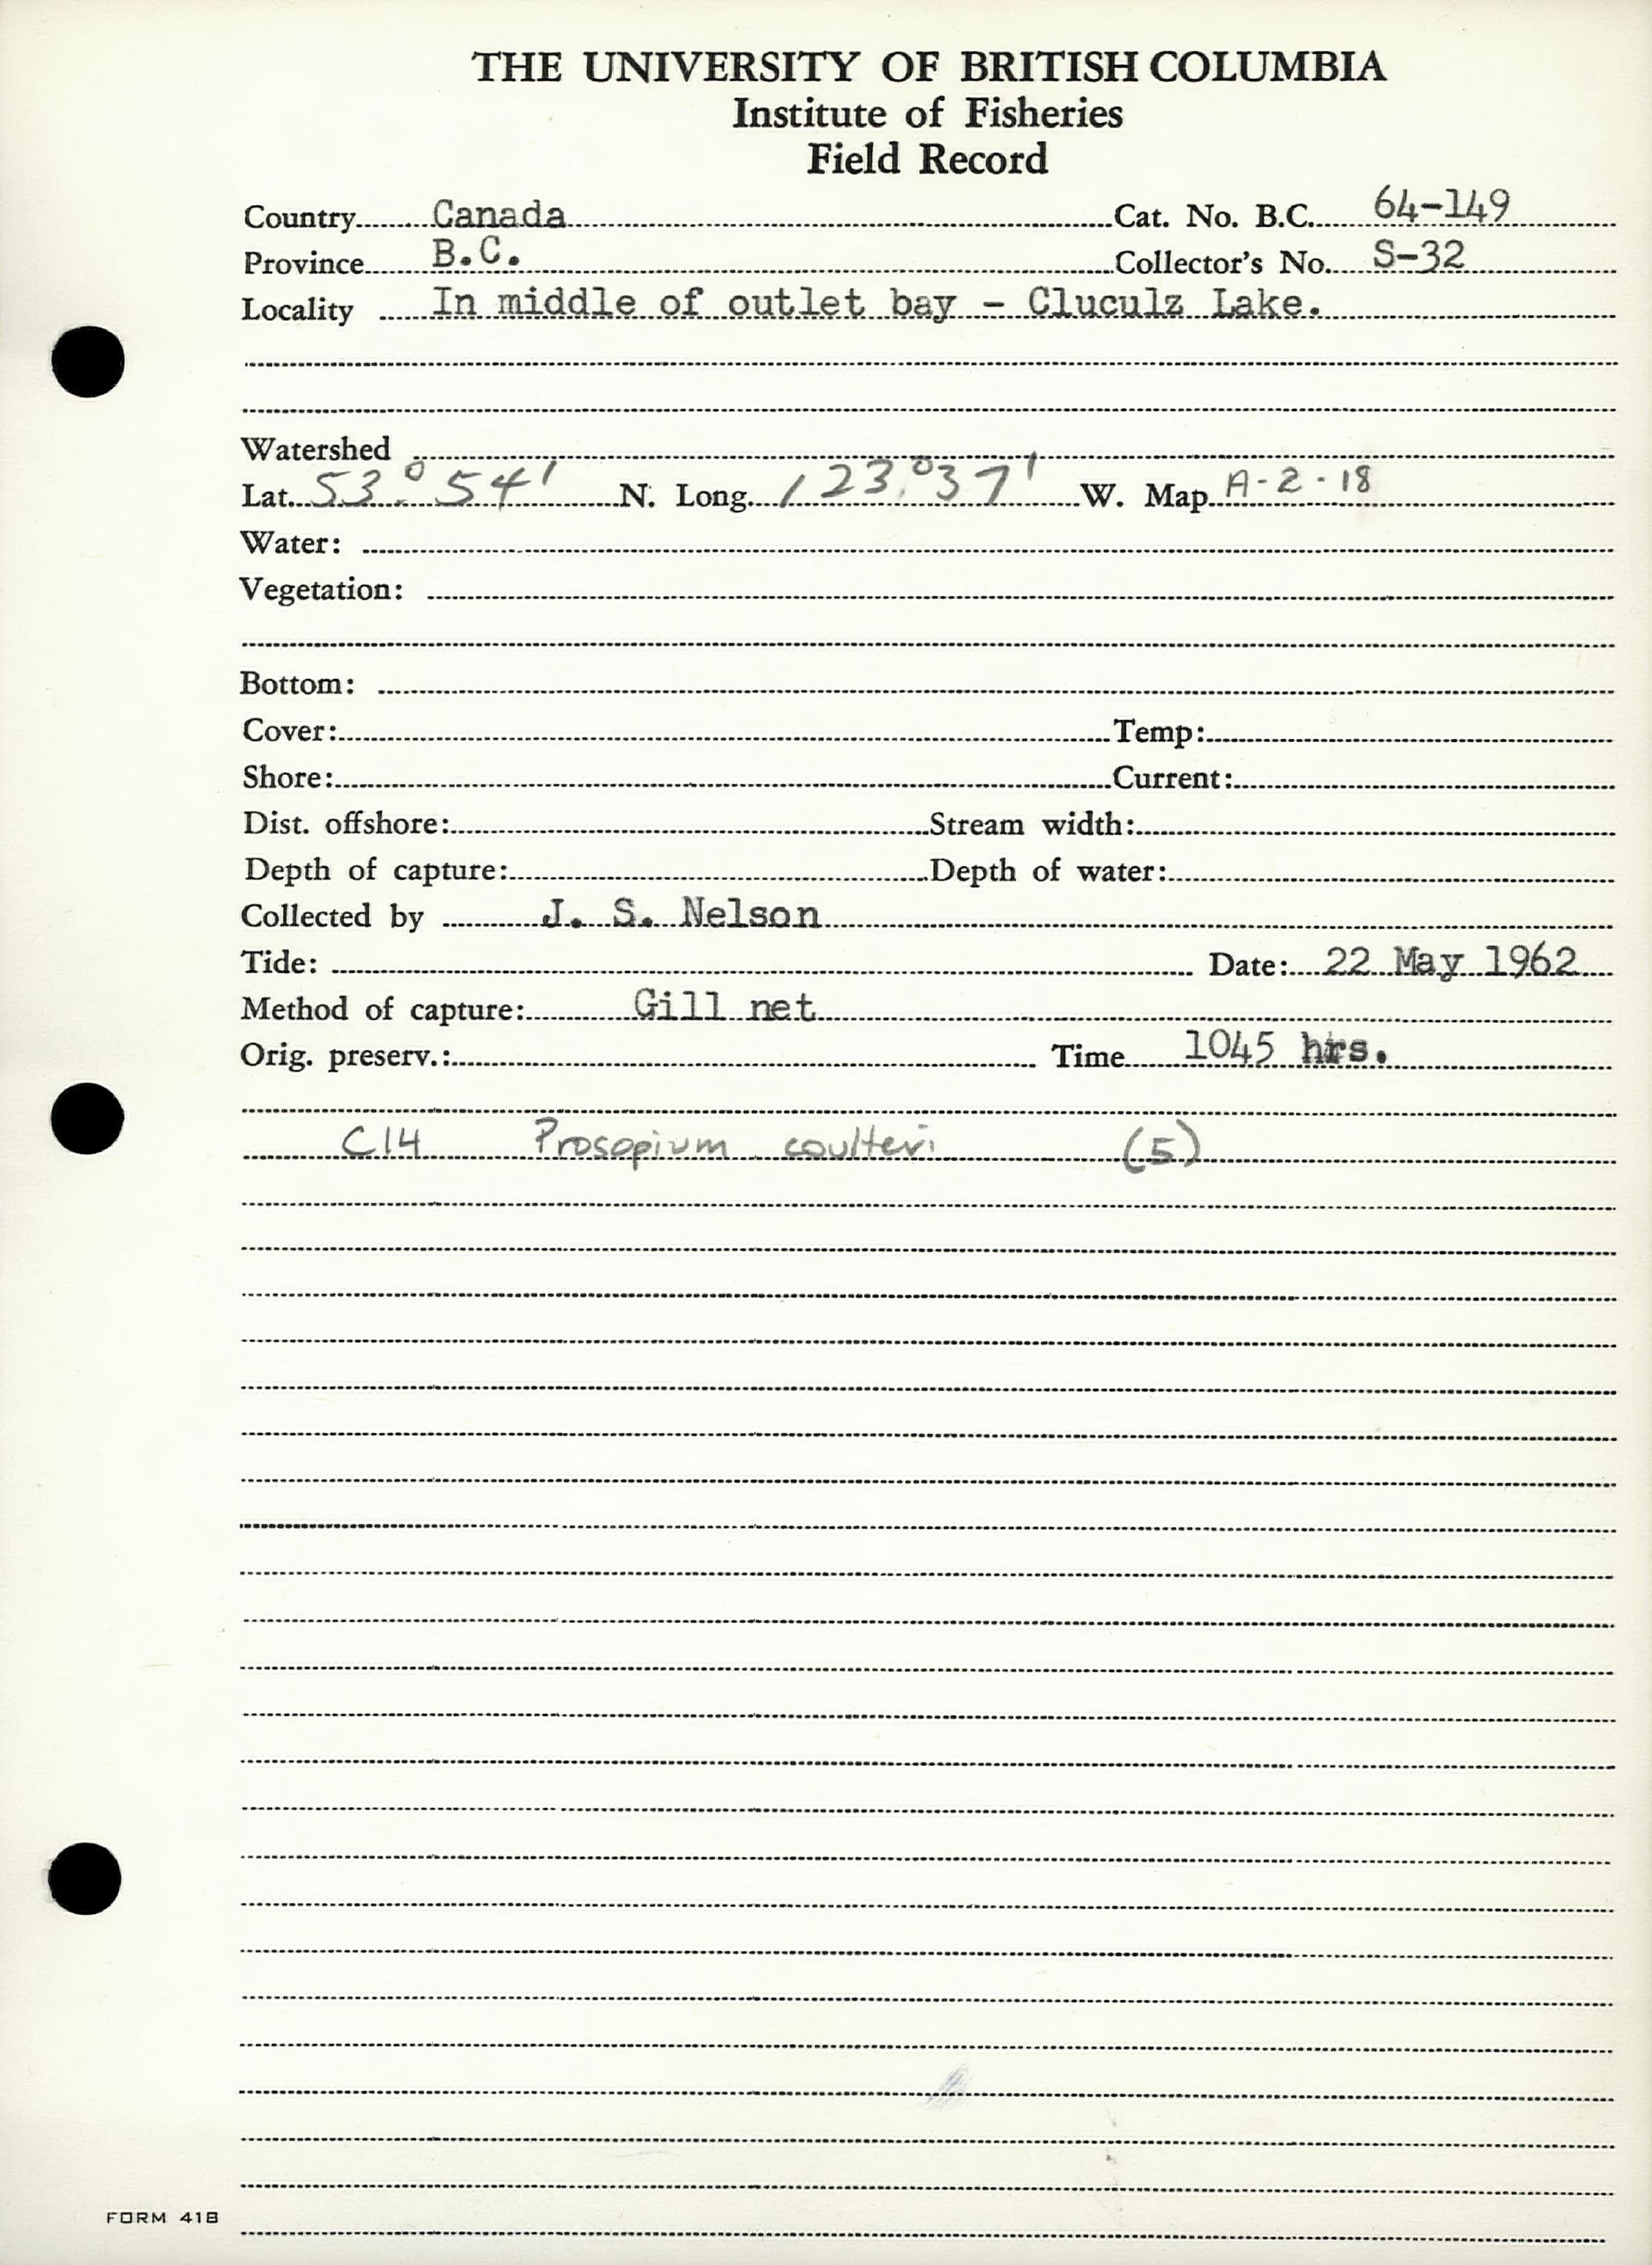 THE UNIVERSITY OF BRITISH COLUMBIA
Institute of Fisheries
Field Record
Country Canada Cat. No. B.C. 64-149
Province B.C. Collector's No. S-32
Locality In middle of outlet bay - Cluculz Lake.
Watershed
Lat. 53° 54' N. Long. 123° 37' W. Map A-2-18
Water:
Vegetation:
Bottom:
Cover: Temp:
Shore: Current:
Dist. offshore: Stream width:
Depth of capture: Depth of water:
Collected by J. S. Nelson
Tide: Date: 22 May 1962
Method of capture: Gill net
Orig. preserv.: Time 1045 hrs.
C14 Prosopium coulteri (5)
FORM 41B